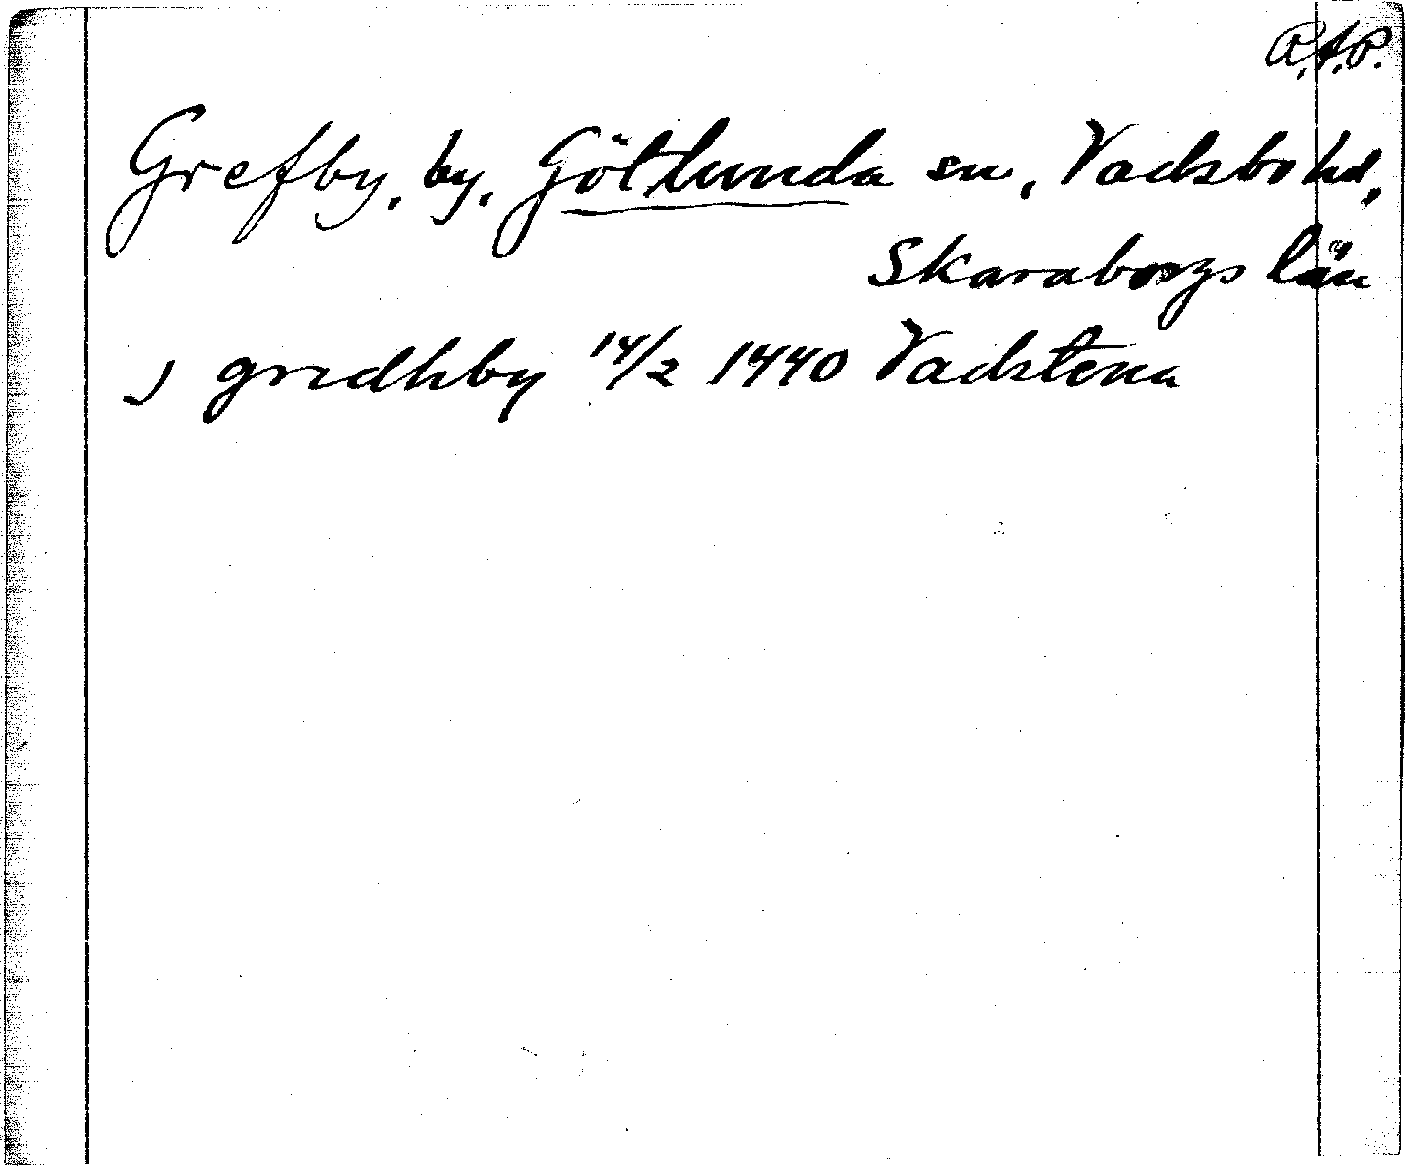 R.A.P.
Grefby, by, Götlunda sn, Vadsbo hd,
Skaraborgs län
J gredhby 14/2 1440 Vadstena